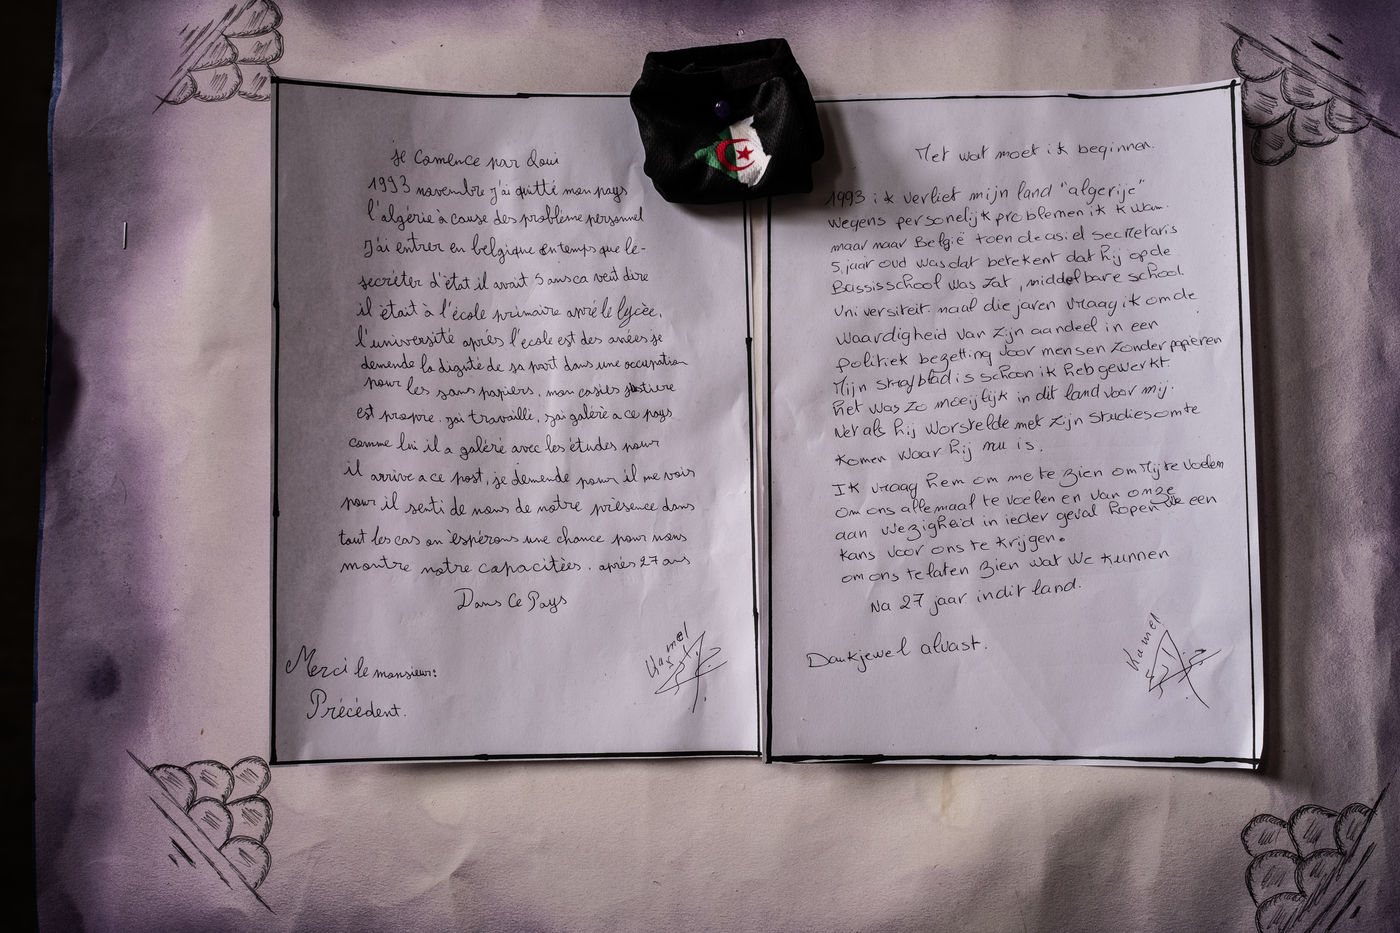 je comence par quoi
1993 novembre j'ai quitté mon pays
l'algérie à cause des problème personnel
J'ai entrer en belgique en temps que le-
secréter d'état il avait 5 ans ca veut dire
il était à l'école primaire aprè le lycèe,
l'université aprés l'école est des anées je
demende la dignité de sa part dans une occupation
pour les sans papiers, mon casies justiere
est propre. j'ai travaillé, j'ai galéré a ce pays
comme lui il a galéré avec les études pour
il arrive a ce post, je demende pour il me vois
pour il senti de nous de notre présence dans
tout les cas on èspérons une chance pour nous
montre notre capacitées. aprés 27 ans
Dans Ce Pays
Merci le monsieur:
Précédent.
Kamel
Met wat moet ik beginnen.
1993 ik verliet mijn land "algerije"
wegens personelijk problemen ik kwam.
maar naar België toen de asiel secretaris
5 jaar oud was dat betekent dat hij op de
Bassisschool was zat, middelbare school
Universiteit. naal die jaren vraag ik om de
waardigheid van zijn aandeel in een
politiek bezetting voor mensen zonder papieren
Mijn strafblad is schoon ik heb gewerkt.
het was zo moeijlijk in dit land voor mij.
Net als hij worstelde met zijn studies om te
komen waar hij nu is.
Ik vraag hem om me te zien om Mij te voelen
om ons allemaal te voelen en van onze
aan wezigheid in ieder geval hopen we een
kans voor ons te krijgen.
om ons te laten zien wat we kunnen
Na 27 jaar in dit land.
Dankjewel alvast.
Kamel